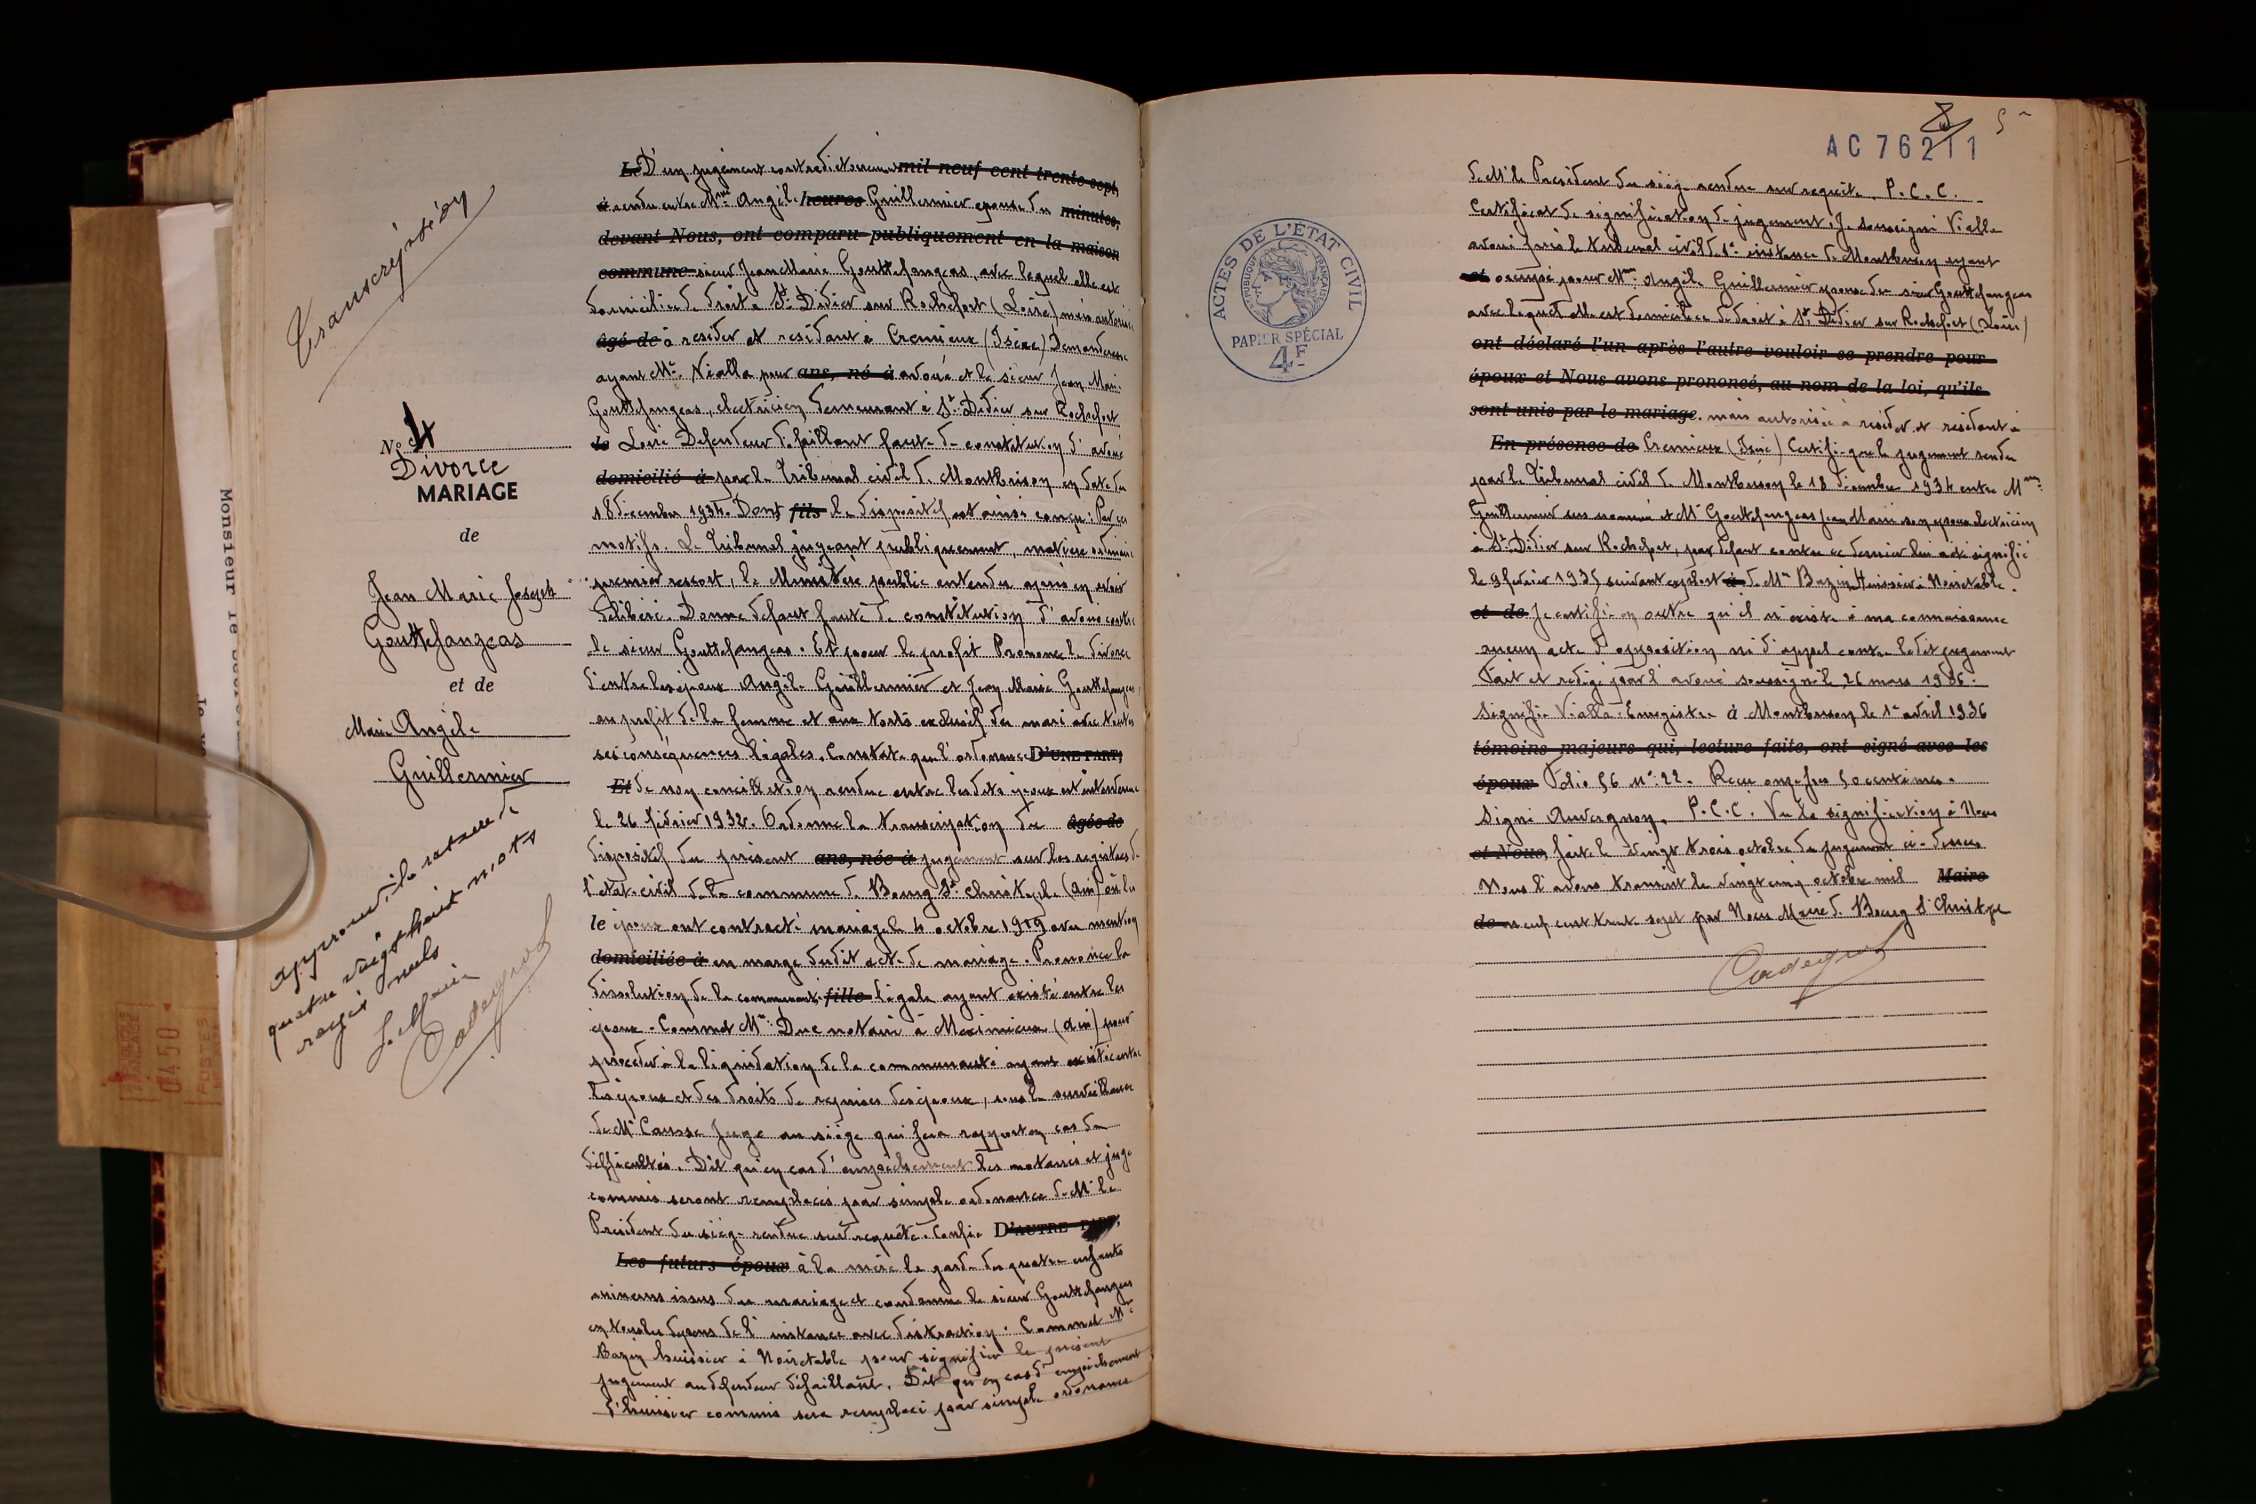 Transcription
N° 4
Divorce
MARIAGE
de
Jean Marie Joseph
Gouttefangeas
et de
Marie Angèle
Guillermier
approuvé, la rature de
quatre vingt huit mots
rayés nuls
Le Maire
Le D'un jugement contradictoirement mil neuf cent trente sept,
à rendu entre Mme Angèle heures Guillermier épouse du minutes,
devant Nous, ont comparu publiquement en la maison
commune sieur Jean Marie Gouttefangeas, avec lequel elle est
domiciliée de droit à St Didier sur Rochefort (Loire) mais autorisée
âgé de à résider et résidant à Cremieux (Isère) Demanderesse
ayant Me Vialla pour ans, né à avoué et le sieur Jean Marie
Gouttefangeas, electricien, demeurant à St Didier sur Rochefort
le Loire Defendeur défaillant faute de constitution d'avoué
domicilié à par le Tribunal civil de Montbrison en date du
18 décembre 1934. Dont fils le dispositif est ainsi conçu : Par ces
motifs. Le Tribunal jugeant publiquement, matière ordinaire
premier ressort, le Ministère public entendu après en avoir
délibéré. Donne défaut faute de constitution d'avoué contre
le sieur Gouttefangeas. Et pour le profit Prononce le divorce
d'entre les époux Angèle Guillermier et Jean Marie Gouttefangeas,
au profit de la femme et aux torts exclusifs du mari avec toutes
ses conséquences légales. Constate que l'ordonnance D'UNE PART;
Et de non conciliation rendue entre lesdits époux est intervenue
le 26 février 1932. Ordonne la transcription du âgée de
dispositif du présent ans, née à jugement sur les registres de
l'état-civil de la commune de Bourg St Christophe (Ain) où les
le époux ont contracté mariage le 4 octobre 1919 avec mention
domiciliée à en marge dudit acte de mariage. Prononce la
dissolution de la communauté fille légale ayant existé entre les
époux. Commet Me Duc notaire à Meximieux (Ain) pour
procéder à la liquidation de la communauté ayant existé entre
les époux et des droits de reprises des époux, sous la surveillance
de M. Causse Juge au siège qui fera rapport en cas de
difficultés. Dit qu'en cas d'empêchement les notaires et juge
commis seront remplacés par simple ordonnance de M. le
Président du siège rendue sur requête. Confie D'AUTRE PART,
Les futurs époux à la mère la garde des quatre enfants
mineurs issus du mariage et condamne le sieur Gouttefangeas
en tous les dépens de l'instance avec distraction. Commet Me
Bazin huissier à Noirétable pour signifier le présent
jugement au défendeur défaillant. Dit qu'en cas d'empêchement
l'huissier commis sera remplacé par simple ordonnance
AC 76211
de M. le Président du siège rendue sur requête. P.C.C.
Certificat de signification de jugement. Je soussigné Vialla
avoué près le tribunal civil de 1e instance de Montbrison ayant
et occupé pour Mme Angèle Guillermier épouse du sieur Gouttefangeas
avec lequel elle est domiciliée de droit à St Didier sur Rochefort (Loire)
ont déclaré l'un après l'autre vouloir se prendre pour
époux et Nous avons prononcé, au nom de la loi, qu'ils
sont unis par le mariage. mais autorisée à résider et résidant à
En présence de Cremieux (Isère) Certifie que le jugement rendu
par le Tribunal civil de Montbrison le 18 décembre 1934 entre Mme
Guillermier sus nommée et M. Gouttefangeas Jean Marie son époux electricien
à St Didier sur Rochefort, par défaut contre ce dernier lui a été signifié
le 9 février 1935 suivant exploit à de Me Bazin Huissier à Noirétable.
et de Je certifie en outre qu'il n'existe à ma connaissance
aucun acte d'opposition ni d'appel contre ledit jugement
Fait et rédigé par l'avoué soussigné le 26 mars 1936.
Signifie Vialla. Enregistré à Montbrison le 1e avril 1936
témoins majeurs qui, lecture faite, ont signé avec les
époux Folio 56 n° 22. Reçu onze frs 50 centimes.
Signé Auvergnon. P.C.C. Vu la signification à Nous
et Nous, faite le vingt trois octobre du jugement ci-dessus
Nous l'avons transcrit le vingt cinq octobre mil Maire
de neuf cent trente sept par Nous Maire de Bourg St Christophe
ACTES DE L'ETAT CIVIL
REPUBLIQUE FRANÇAISE
PAPIER SPÉCIAL
4F
Monsieur le
0450
POSTES